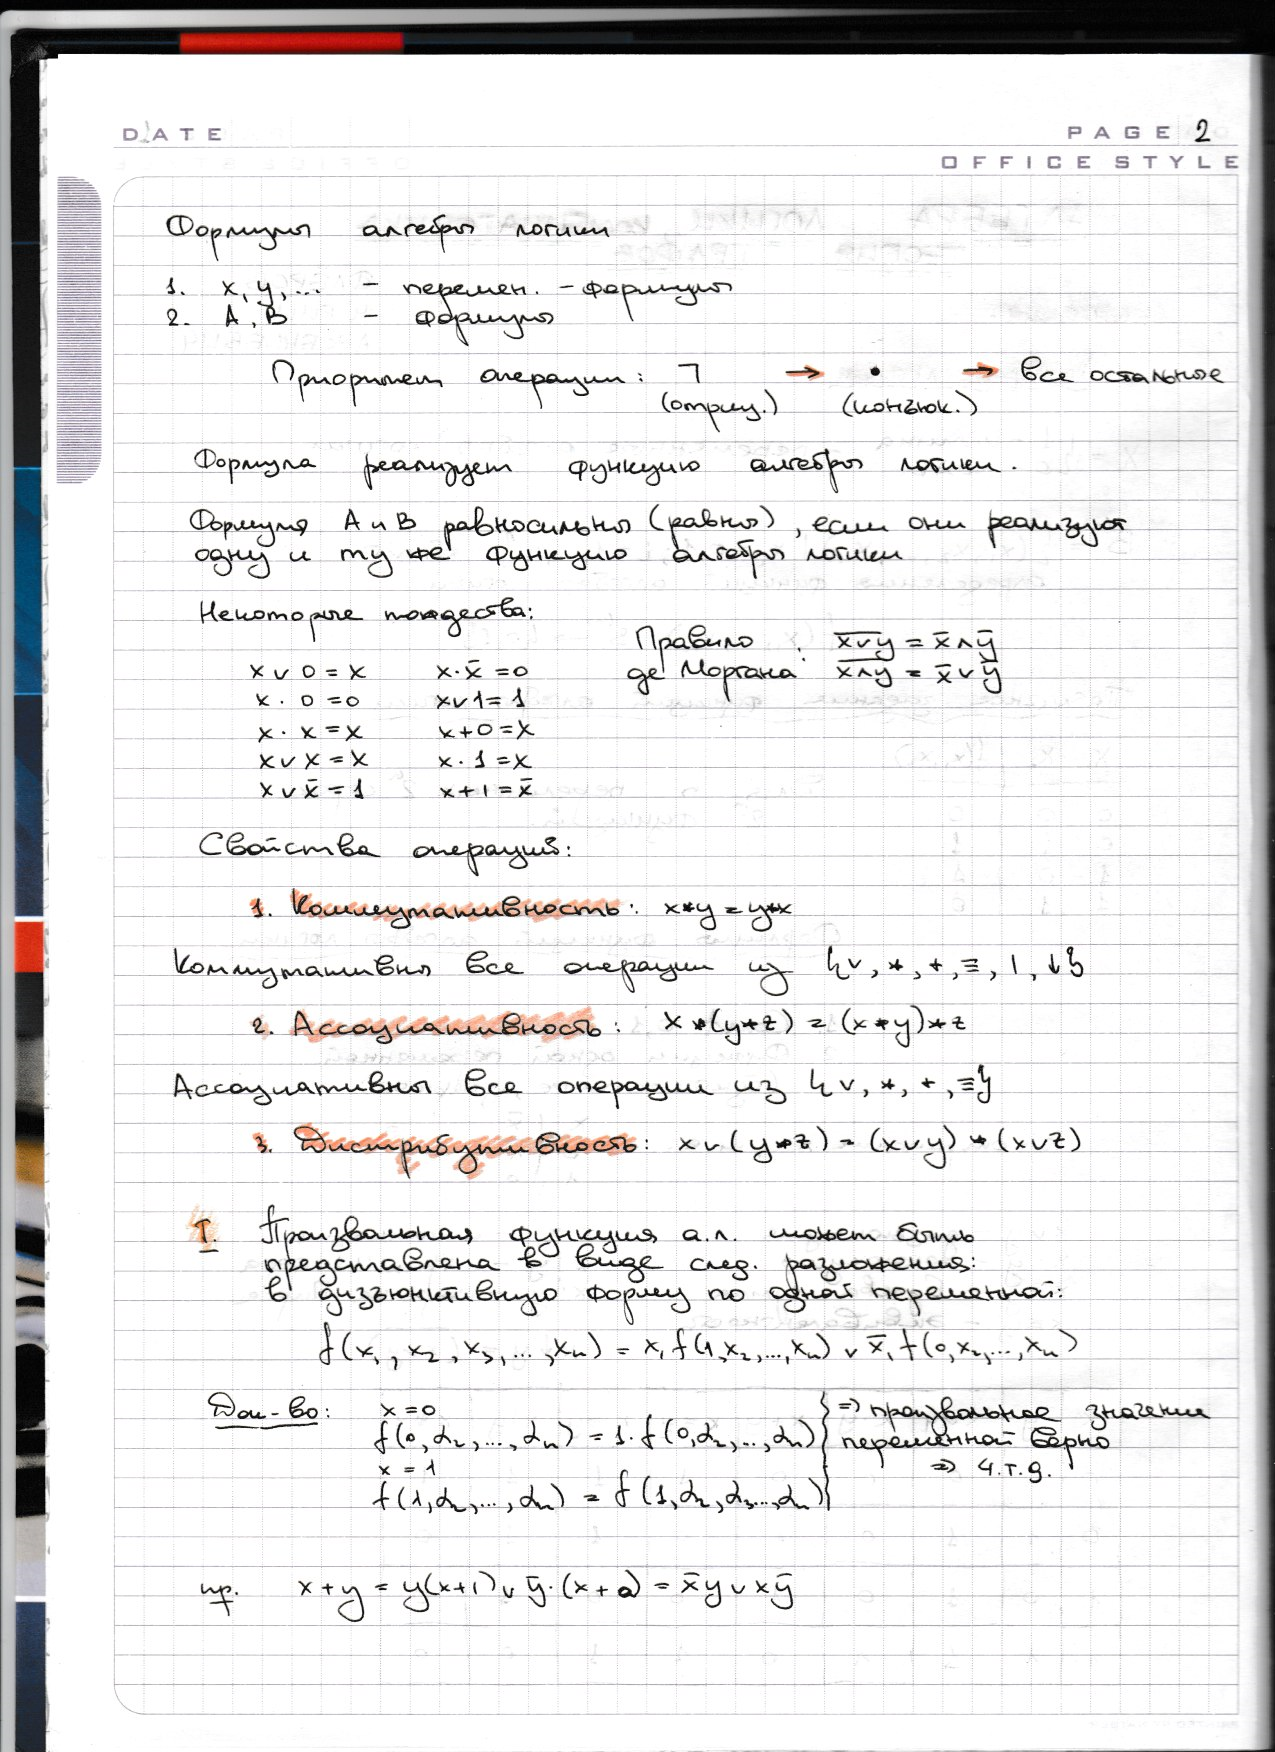 DATE
PAGE 2
OFFICE STYLE
Формулы алгебры логики
1. x, y, ... – перемен. – формулы
2. A, B – формулы
Приоритет операции: ¬ → • → все остальные
(отриц.) (конъюк.)
Формула реализует функцию алгебры логики.
Формулы A и B равносильны (равны), если они реализуют
одну и ту же функцию алгебры логики
Некоторые тождества:
Правило де Моргана:
x̅ ̅v̅ ̅y̅ = x̄ ∧ ȳ
x̅ ̅∧̅ ̅y̅ = x̄ v ȳ
x v 0 = x x·x̄ = 0
x · 0 = 0 x v 1 = 1
x · x = x x+0 = x
x v x = x x · 1 = x
x v x̄ = 1 x+1 = x̄
Свойства операций:
1. Коммутативность: x*y = y*x
Коммутативны все операции из {v, *, +, ≡, |, ↓}
2. Ассоциативность: x*(y*z) = (x*y)*z
Ассоциативны все операции из {v, *, +, ≡}
3. Дистрибутивность: x v (y*z) = (x v y) * (x v z)
Т. Произвольная функция а.л. может быть
представлена в виде след. разложения:
в дизъюнктивную форму по одной переменной:
f(x₁, x₂, x₃, ..., xₙ) = x₁f(1, x₂, ..., xₙ) v x̄₁f(0, x₂, ..., xₙ)
Док-во: x = 0
f(0, α₂, ..., αₙ) = 1·f(0, α₂, ..., αₙ)
x = 1
f(1, α₂, ..., αₙ) = f(1, α₂, α₃..., αₙ)
} => произвольное значение
переменной верно
=> ч.т.д.
пр. x+y = y(x+1) v ȳ·(x+0) = x̄y v xȳ